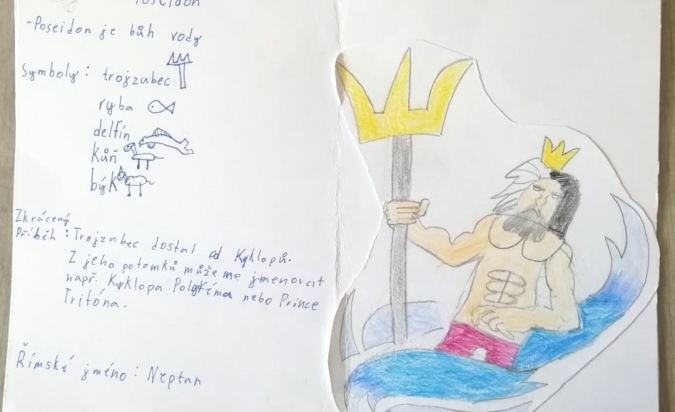 Poseidon
-Poseidon je bůh vody
Symboly: trojzubec
ryba
delfín
kůň
býk
Zkrácený
Příběh: Trojzubec dostal od Kyklopů.
Z jeho potomků může me jmenovat
např. Kyklopa Polyféma nebo Prince
Tritóna.
Římské jméno: Neptun